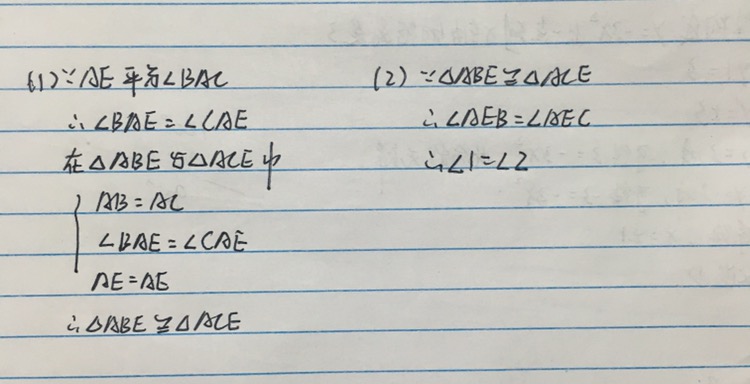 (1)∵AE平分∠BAC
∴∠BAE=∠CAE
在△ABE与△ACE中
AB=AC
∠BAE=∠CAE
AE=AE
∴△ABE≌△ACE
(2) ∵△ABE≌△ACE
∴∠AEB=∠AEC
∴∠1=∠2